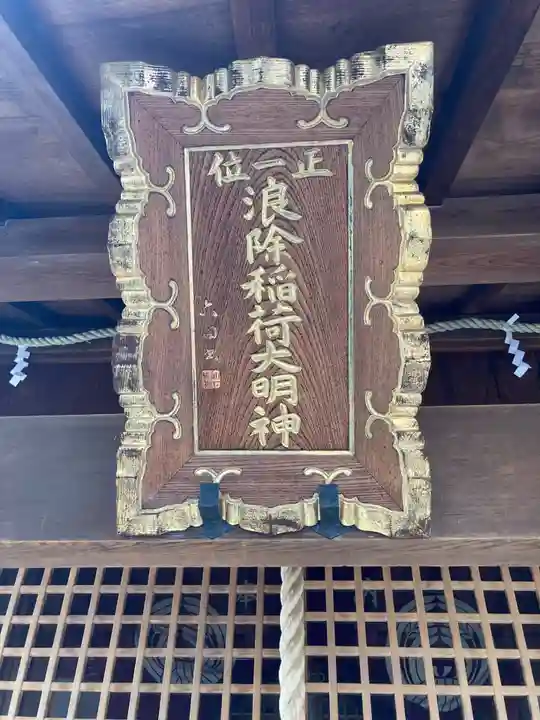 正一位
浪除稲荷大明神